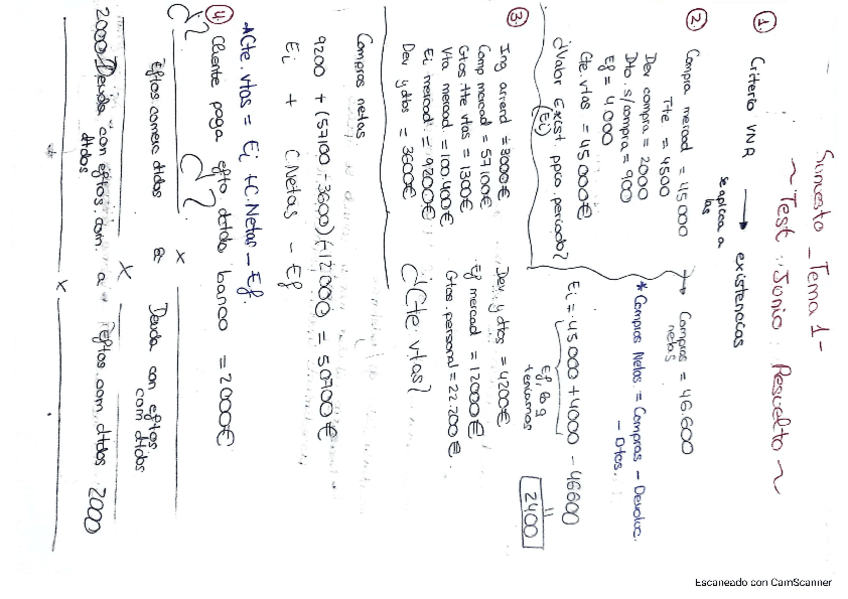 Supuesto - Tema 1 -
~ Test Junio Resuelto ~
1. Criterio VNR → existencias
se aplica a las
2. Compra mercad = 45.000
Tte = 4500
Dev compra = 2000
Dto. s/compra = 900
Ef = 4.000
Cte. vtas = 45.000€
¿Valor Exist. ppio periodo?
(Ei)
→ Compras netas = 46.600
* Compras Netas = Compras - Devoluc.
- Dtos.
Ei = 45.000 + 4000 - 46600
2400
3. Ing arrend = 3000€
Comp mercad = 57.100€
Gtos. tte vtas = 1300€
Vta mercad = 100.400€
Ei mercad = 9200€
Dev y dtos = 3600€
Dev. y dtos = 4200€
Ef mercad = 12000€
Gtos. personal = 22.200€.
¿Cte. vtas?
Compras netas.
9200 + (57100 - 3600) (-12000) = 50700€
Ei + C.Netas - Ef
* Cte. vtas = Ei + C.Netas - Ef.
4. Cliente paga efto dtdo banco = 2000€
¿?
¿?
Eftos comerc dtdos a Deuda con eftos com dtdos
x x
2000 Deuda con eftos. com. dtdos a Eftos com. dtdos 2000
x x
Escaneado con CamScanner